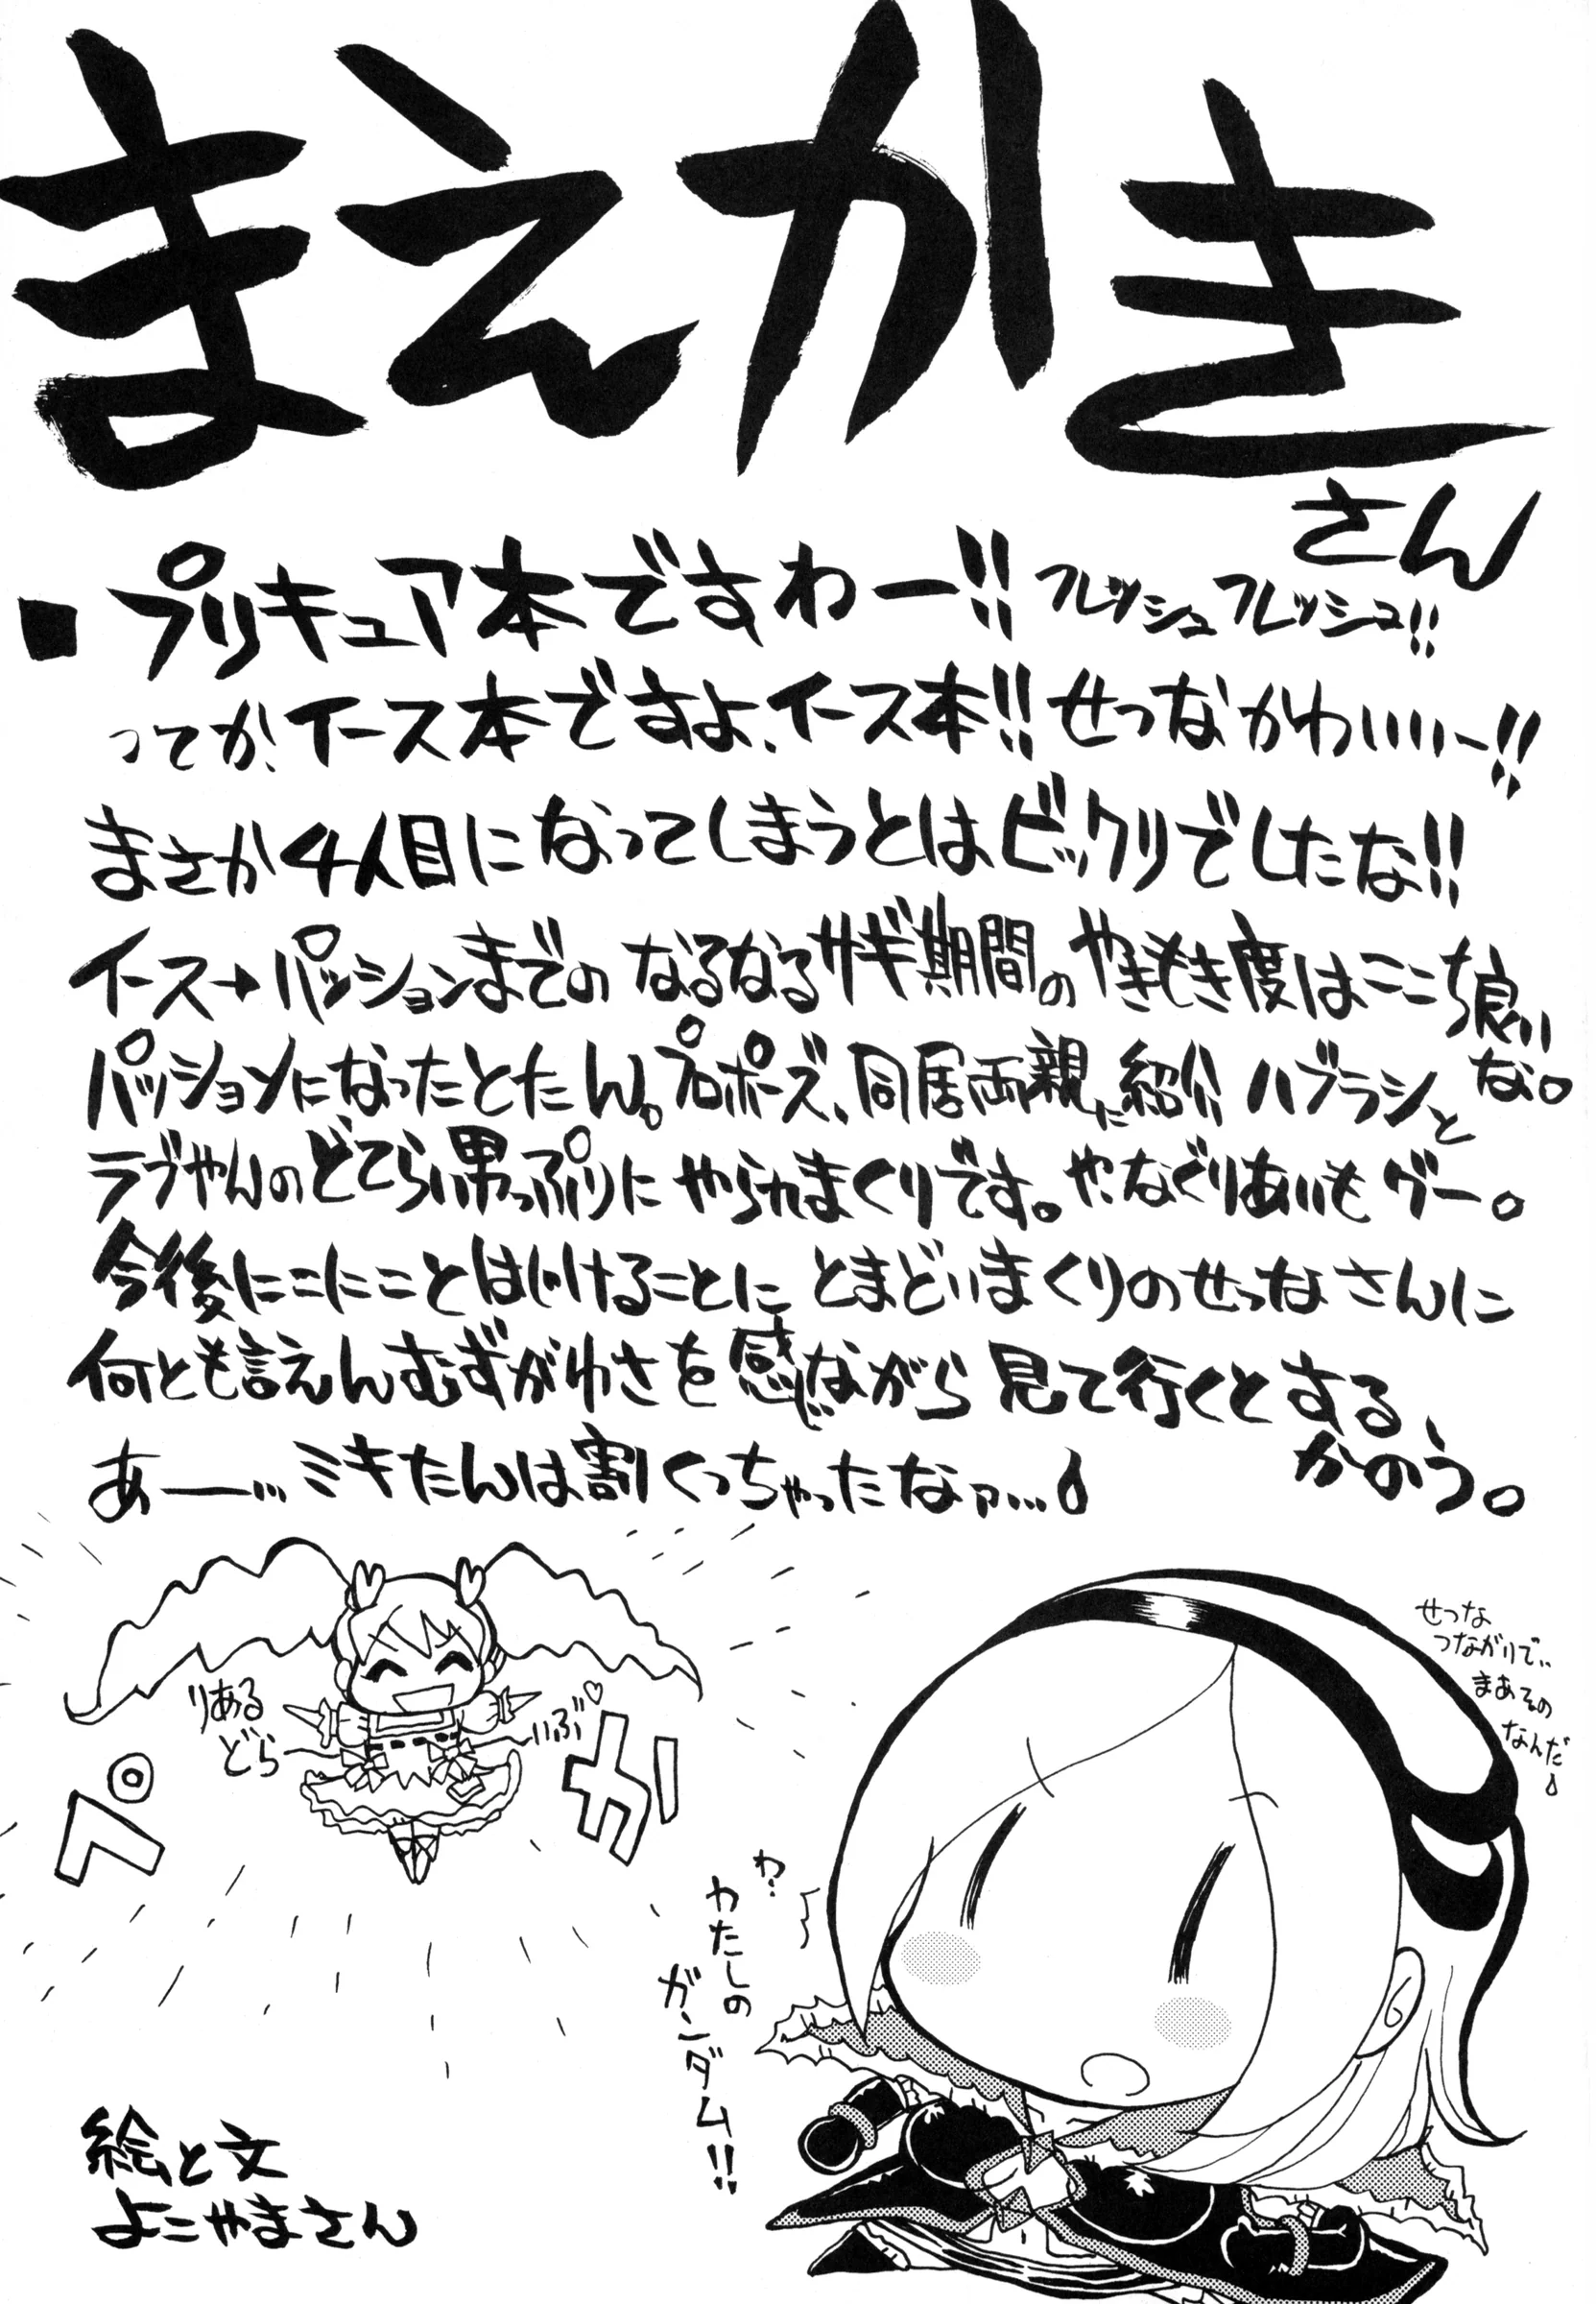 まえかき
さん
■プリキュア本ですわー!! フレッシュフレッシュ!!
ってか、イース本ですよ、イース本!! せつなかわいいー!!
まさか4人目になってしまうとはビックリでしたな!!
イース→パッションまでのなるなるサギ期間のやきもき度はここち良いな。
パッションになったとたん。プロポーズ、同居両親に紹介 ハブラシと
ラブやんのどてらい男っぷりにやられまくりです。やなぐりあいもグー。
今後にこにことはじけることにとまどいまくりのせつなさんに
何とも言えんむずがゆさを感じながら見て行くとするかのう。
あー…ミキたんは割くっちゃったなァ…
りある
どらいぶ♡
ペか
せつな
つながりで…
まあその
なんだ
わ…
わたしの
ガンダム!!
絵と文
よこやまさん